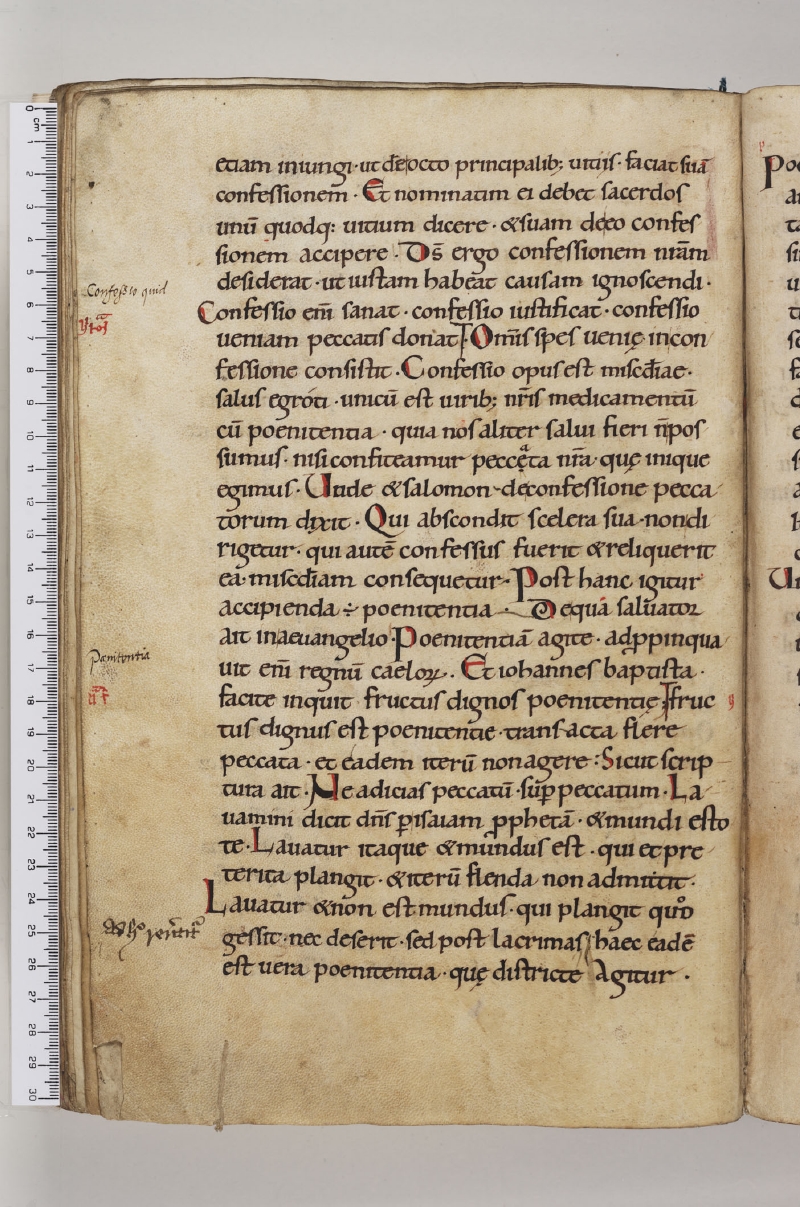 etiam iniungi · ut de octo principalib; uitiis · faciat suā
confessionem · Et nominatim ei debet sacerdos
unū quodq; uitium dicere · & suam de eo confes
sionem accipere · D̄s ergo confessionem nrām
desiderat · ut iustam habeat causam ignoscendi ·
Confessio quid
Confessio em̄ sanat · confessio iustificat · confessio
ueniam peccatis donat · Om̄is spes uenię in con
fessione consistit · Confessio opus est misc̄diae ·
salus egroti · unicū est uirib; nr̄is medicamentū
cū poenitentia · quia nos aliter salui fieri n̄ pos
sumus · nisi confiteamur peccęta nr̄a · quę inique
egimus · Unde & salomon de confessione pecca
torum dixit · Qui abscondit scelera sua · non di
rigetur · qui autē confessus fuerit & reliquerit
ea · misc̄diam consequetur · Post hanc igitur
accipienda ÷ poenitentia · De qua saluator
ait in aeuangelio · Poenitentiā agite · adp̱pinqua
Pœnitentia
uit em̄ regnū caeloꝝ · Et iohannes baptista ·
facite inquit fructus dignos poenitentię · fruc
tus dignus est poenitentie · transacta flere
peccata · et eadem iterū non agere : Sicut scrip
tura ait · Ne adicias peccatū · sup̄ peccatum · La
uamini dicit dn̄s ꝑ isaiam ꝓphetā · & mundi esto
te · Lauatur itaque & mundus est · qui et pre
terita plangit · & iterū flenda non admittit ·
Lauatur & non est mundus · qui plangit quod
gessit · nec deserit · sed post lacrimas haec eadē
est uera poenitentia · quę districte Agitur ·